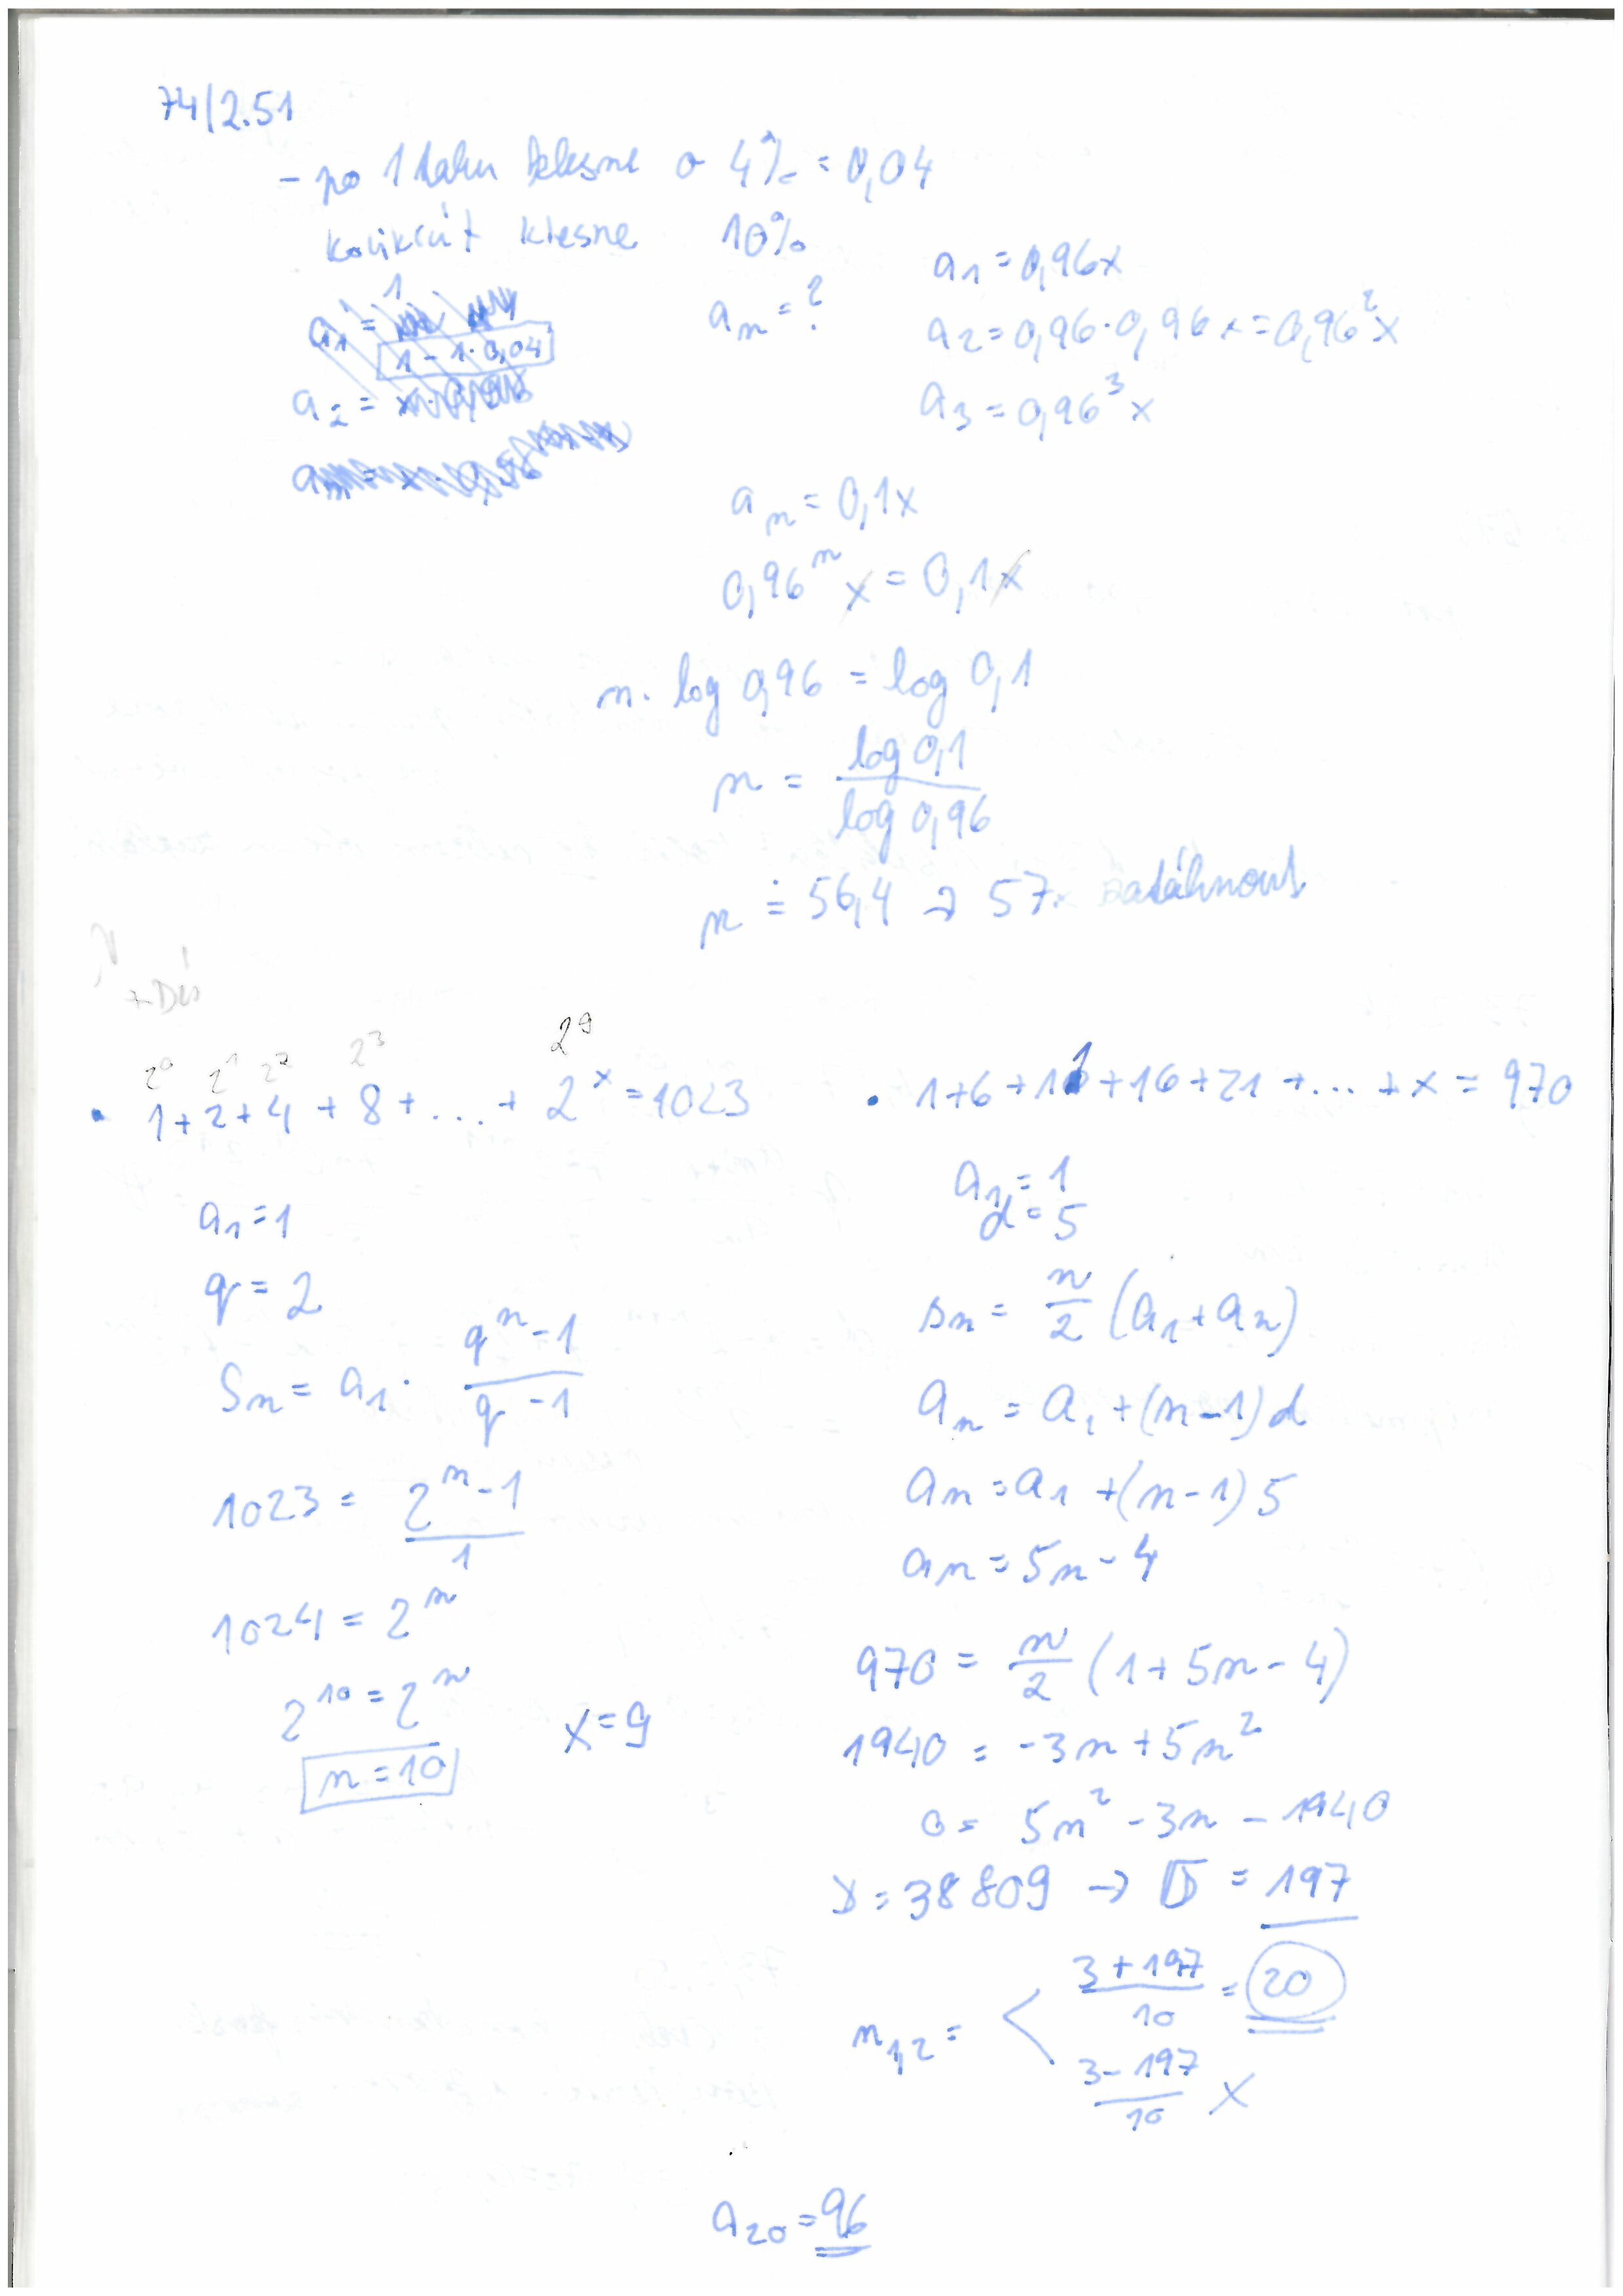 74/2.51
- po 1 tahu klesne o 4% = 0,04
kolikrát klesne 10%
a₁ = 1
1 - 1·0,04
a₂ =
aₙ = ?
a₁ = 0,96x
a₂ = 0,96·0,96x = 0,96²x
a₃ = 0,96³x
aₙ = 0,1x
0,96ⁿx = 0,1x
n·log 0,96 = log 0,1
n = log 0,1 / log 0,96
n ≐ 56,4 → 57x zatáhnout
2⁰ 2¹ 2² 2³ 2⁹
• 1+2+4+8+...+2ˣ=1023
a₁=1
q=2
Sₙ = a₁· (qⁿ-1)/(q-1)
1023 = (2ⁿ-1)/1
1024 = 2ⁿ
2¹⁰ = 2ⁿ
n=10
x=9
• 1+6+11+16+21+...+x = 970
a₁=1
d=5
sₙ = n/2 (a₁+aₙ)
aₙ = a₁+(n-1)d
aₙ = a₁+(n-1)5
aₙ = 5n-4
970 = n/2 (1+5n-4)
1940 = -3n+5n²
0 = 5n²-3n-1940
D=38809 → √D = 197
n₁,₂ = < (3+197)/10 = 20
(3-197)/10 X
a₂₀ = 96